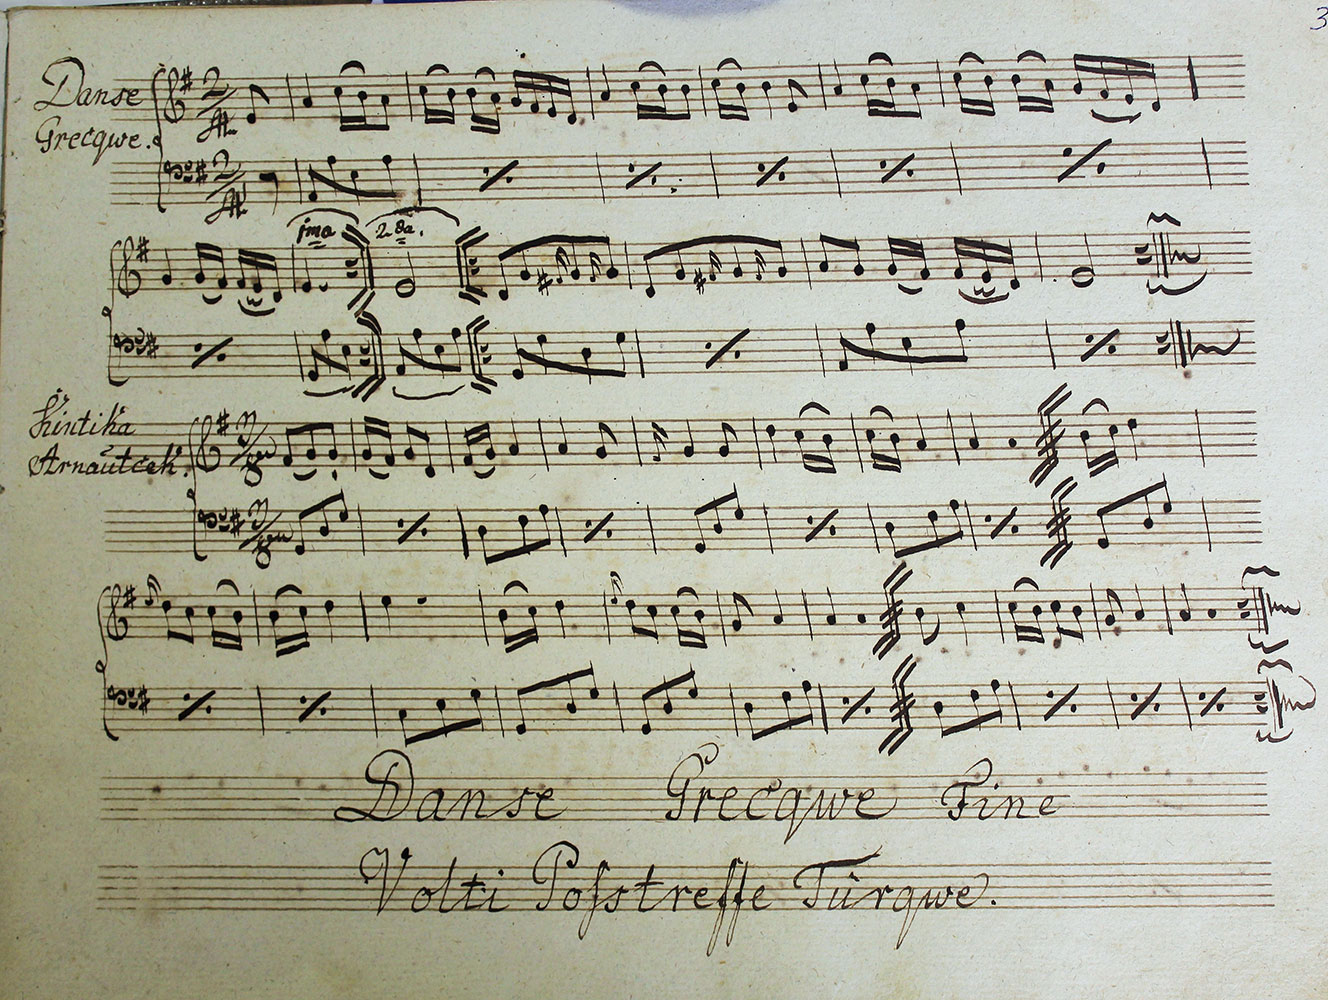 3
Danse
Grecqwe.
2/4
2/4
1mo 2da.
Kintika
Arnautcek.
3/8
3/8
Danse Grecqwe Fine
Volti Posstreffe Türqwe.